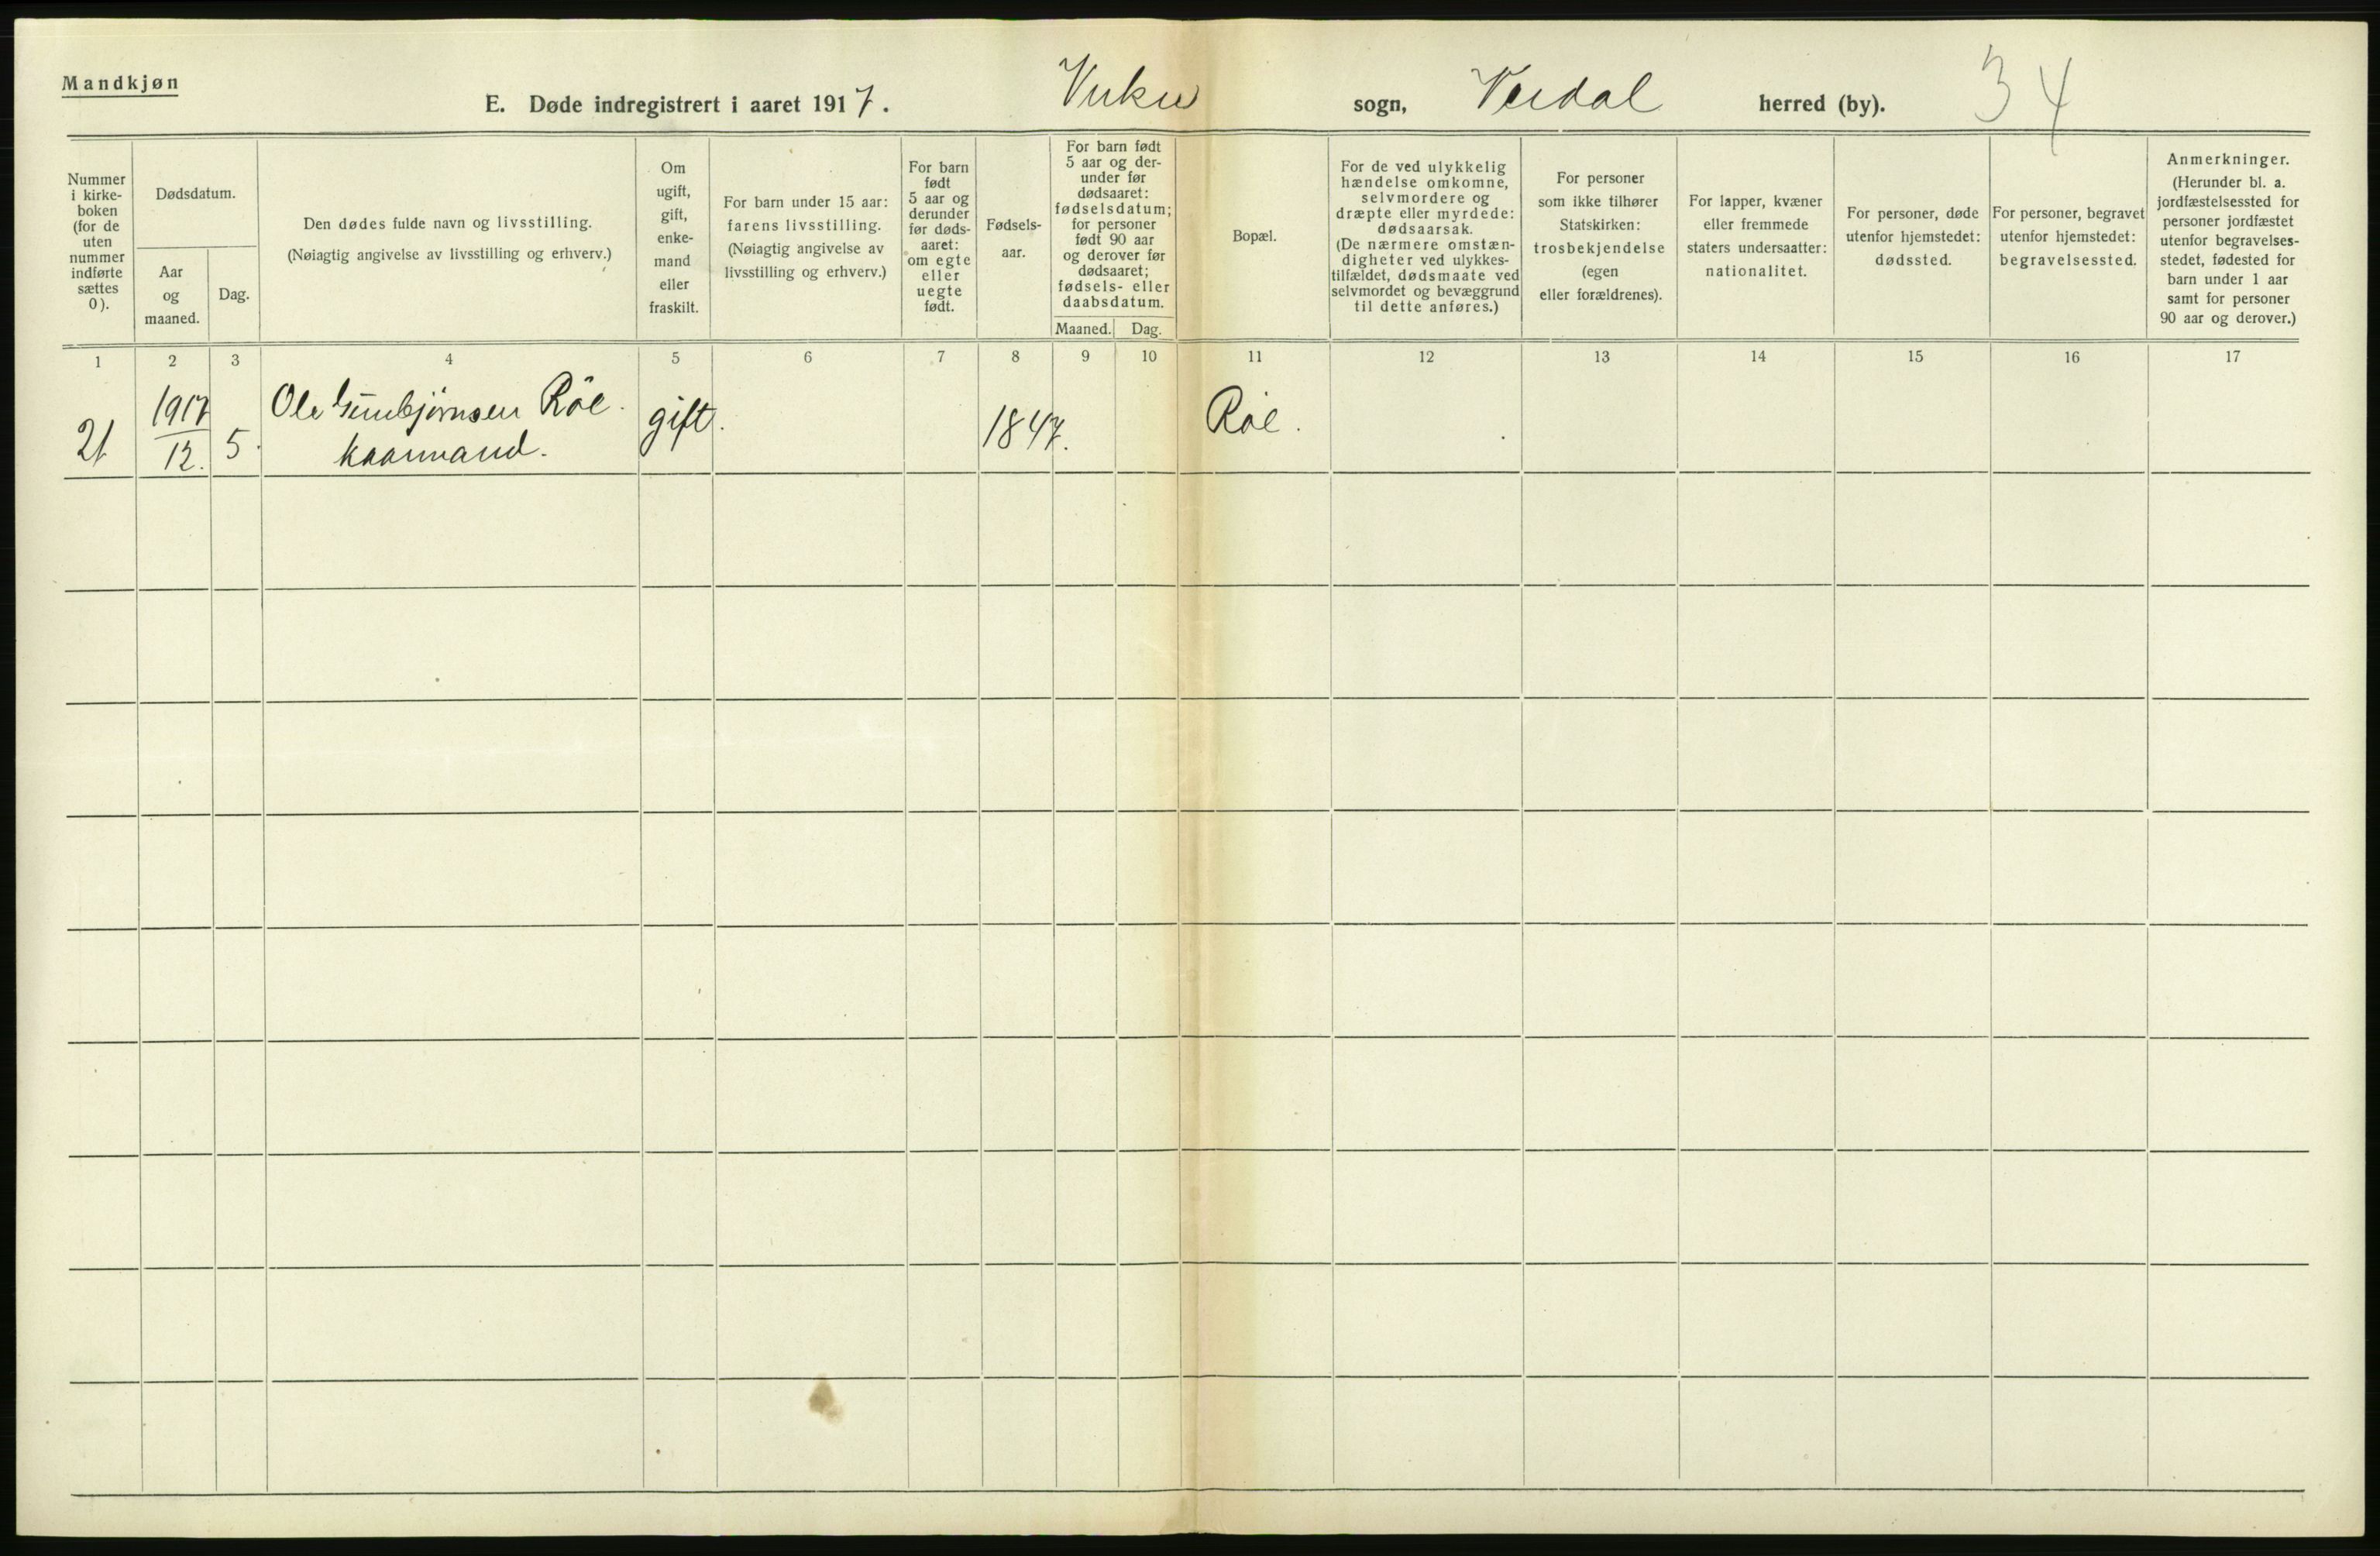 Mandkjøn
E. Døde indregistrert i aaret 1917. Vuku sogn, Verdal herred (by). 34
Nummer
i kirke-
boken
(for de
uten
nummer
indførte
sættes
0).
Dødsdatum.
Aar
og
maaned.
Dag.
Den dødes fulde navn og livsstilling.
(Nøiagtig angivelse av livsstilling og erhverv.)
Om
ugift,
gift,
enke-
mand
eller
fraskilt.
For barn under 15 aar:
farens livsstilling.
(Nøiagtig angivelse av
livsstilling og erhverv.)
For barn
født
5 aar og
derunder
før døds-
aaret:
om egte
eller
uegte
født.
Fødsels-
aar.
For barn født
5 aar og der-
under før
dødsaaret:
fødselsdatum;
for personer
født 90 aar
og derover før
dødsaaret;
fødsels- eller
daabsdatum.
Maaned. Dag.
Bopæl.
For de ved ulykkelig
hændelse omkomne,
selvmordere og
dræpte eller myrdede:
dødsaarsak.
(De nærmere omstæn-
digheter ved ulykkes-
tilfældet, dødsmaate ved
selvmordet og bevæggrund
til dette anføres.)
For personer
som ikke tilhører
Statskirken:
trosbekjendelse
(egen
eller forældrenes).
For lapper, kvæner
eller fremmede
staters undersaatter:
nationalitet.
For personer, døde
utenfor hjemstedet:
dødssted.
For personer, begravet
utenfor hjemstedet:
begravelsessted.
Anmerkninger.
(Herunder bl. a.
jordfæstelsessted for
personer jordfæstet
utenfor begravelses-
stedet, fødested for
barn under 1 aar
samt for personer
90 aar og derover.)
1 2 3 4 5 6 7 8 9 10 11 12 13 14 15 16 17
21
1917
12.
5.
Ole Gunbjørnsen Röe.
kaarmand.
gift.
1847.
Röe.